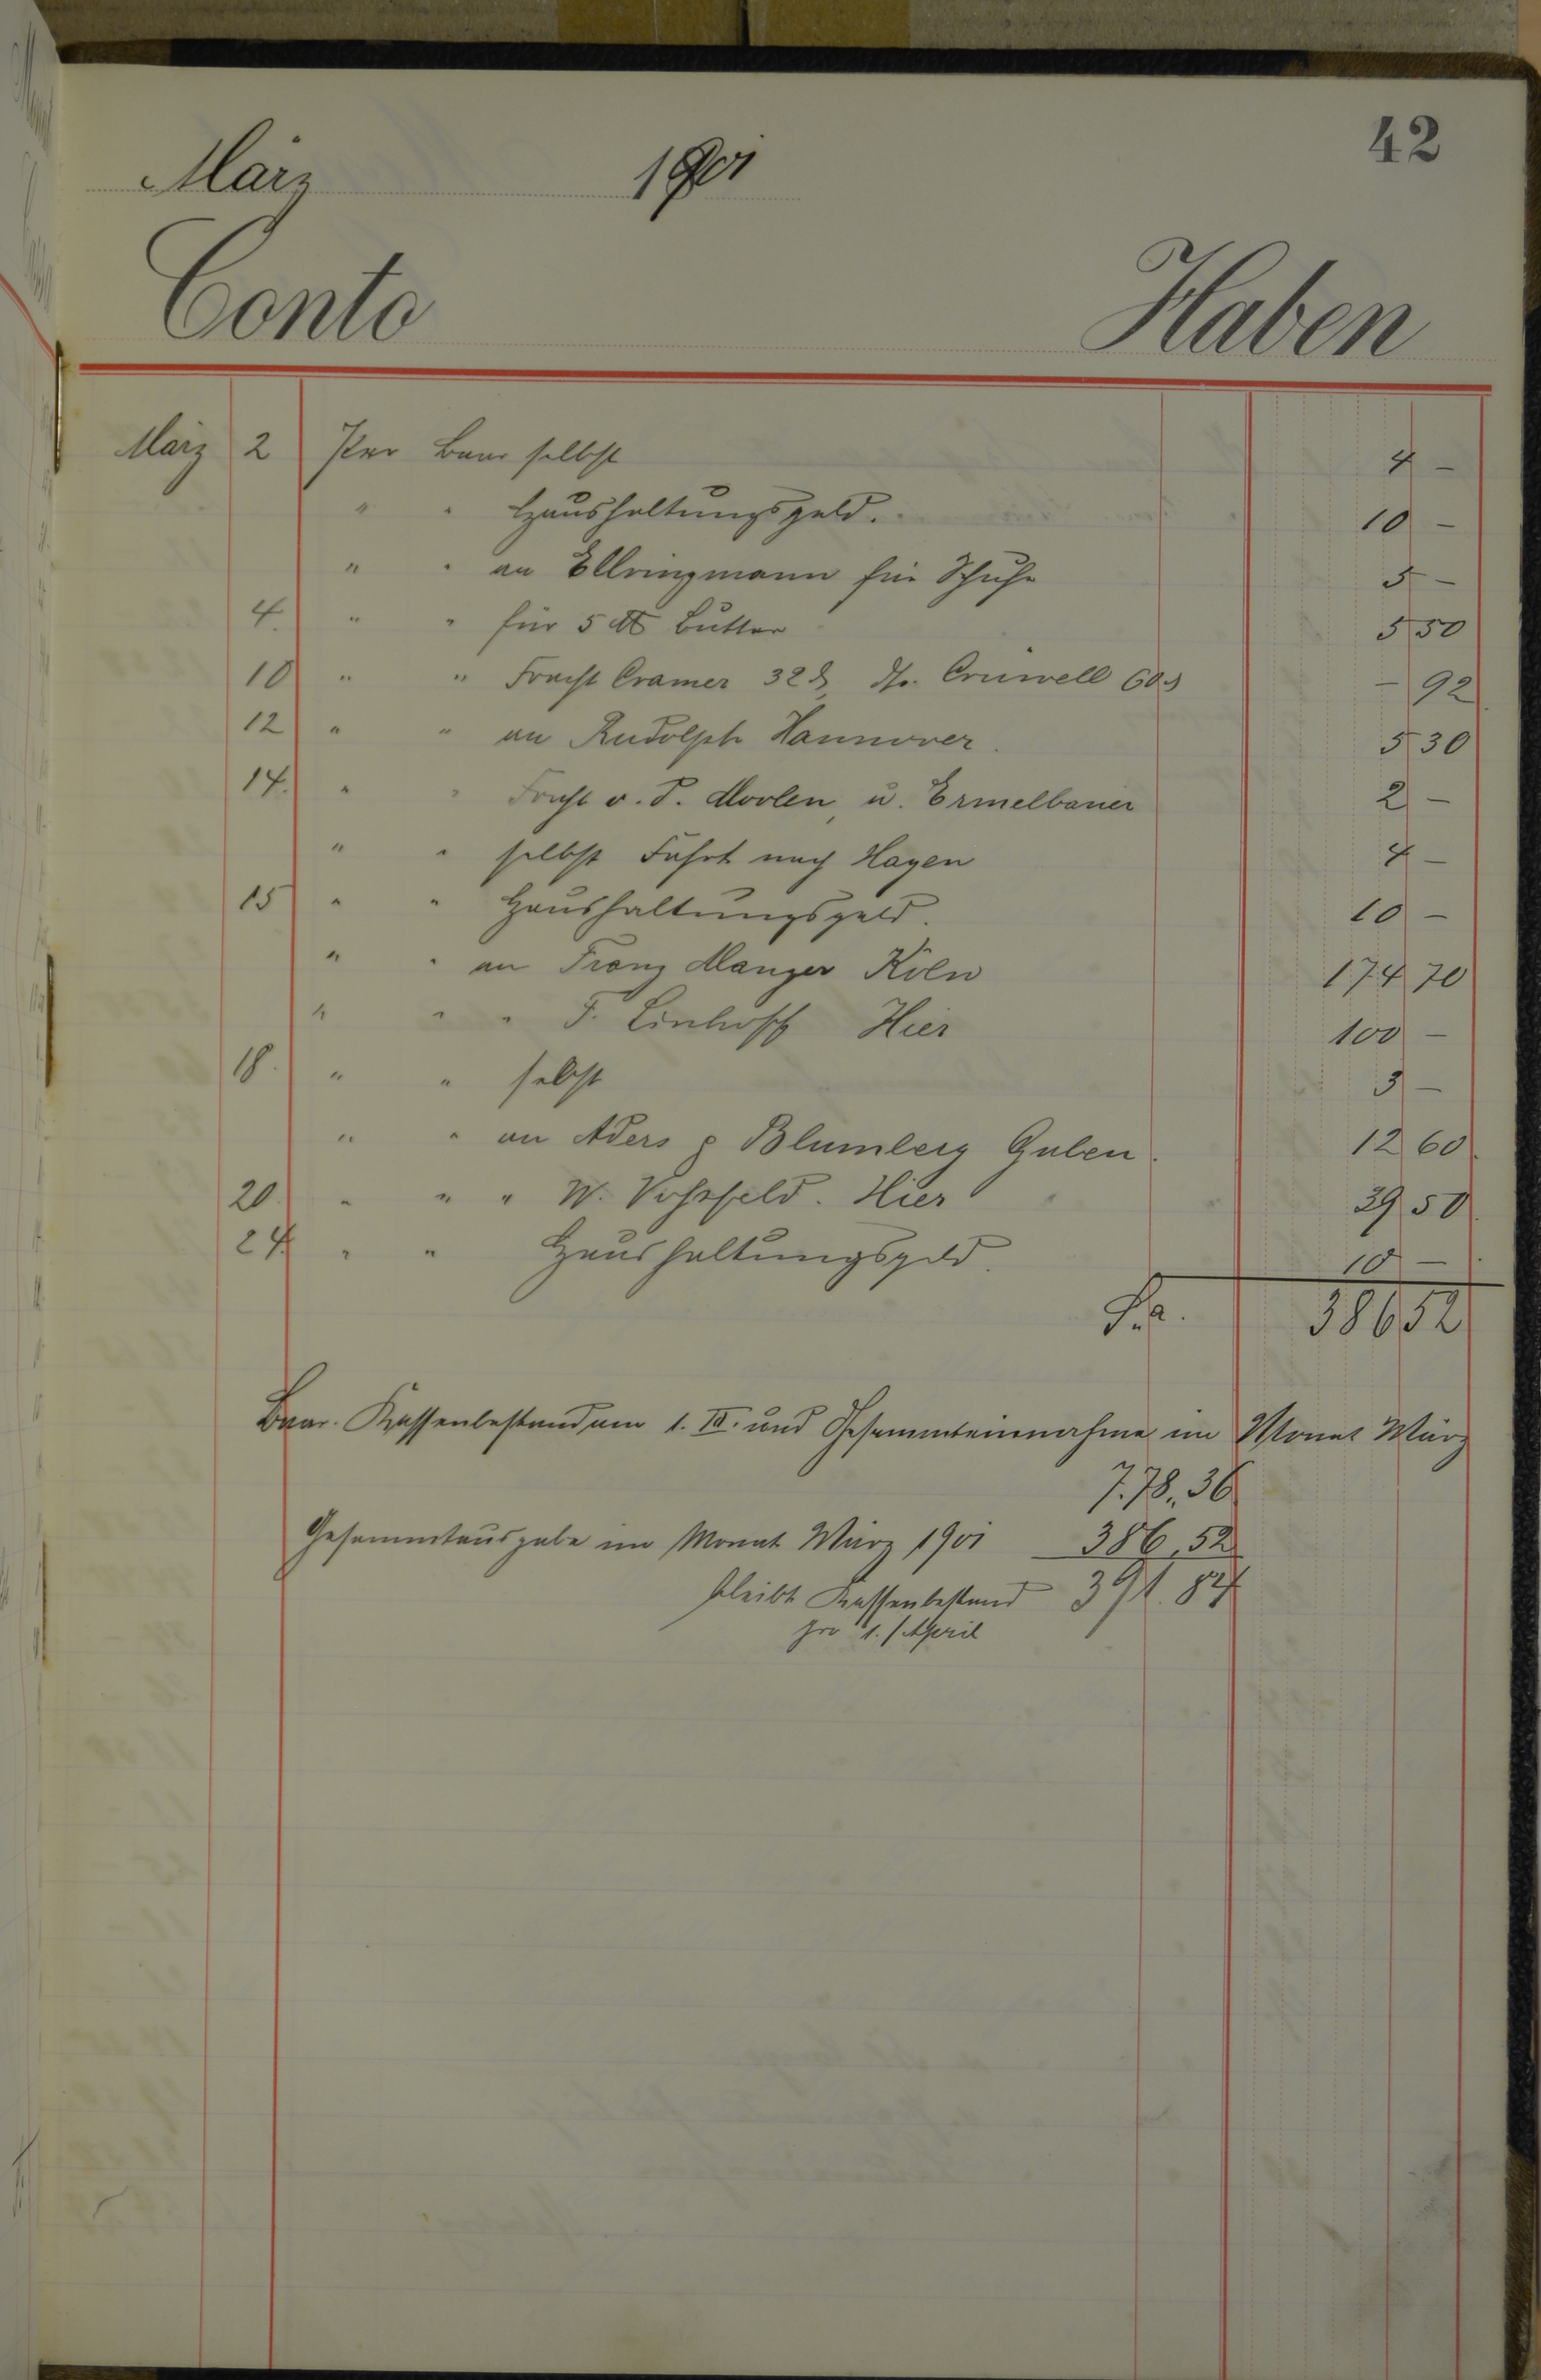 42
März 1901
Conto Haben
März 2 Per Baar selbst 4 -
" " Haushaltungsgeld. 10 -
" " an Ellringmann für Schuhe 5 -
4. " " für 5 ℔ Butter 5 50
10 " " Fracht Cramer 32 ₰, do. Crüwell 60 ₰ - 92
12 " " an Rudolph Hannover. 5 30
14. " " Fracht v. d. Moolen, u. Ermelbauer 2 -
" " selbst Fahrt nach Hagen 4 -
15 " " Haushaltungsgeld. 10 -
" " an Franz Manger Köln 174 70
" " " F. Linhoff Hier 100 -
18. " " selbst 3 -
" " an Aders & Blumberg Guben. 12 60
20. " " " W. Vohsfeld. Hier 39 50
24 " " Haushaltungsgeld. 10 -
Sa. 386 52
Baar. Kassenbestand am 1. III. und Gesammteinnahme im Monat März
7.78,36
Gesammtausgabe im Monat März 1901 386,52
bleibt Kassenbestand 391.84
pro 1. April